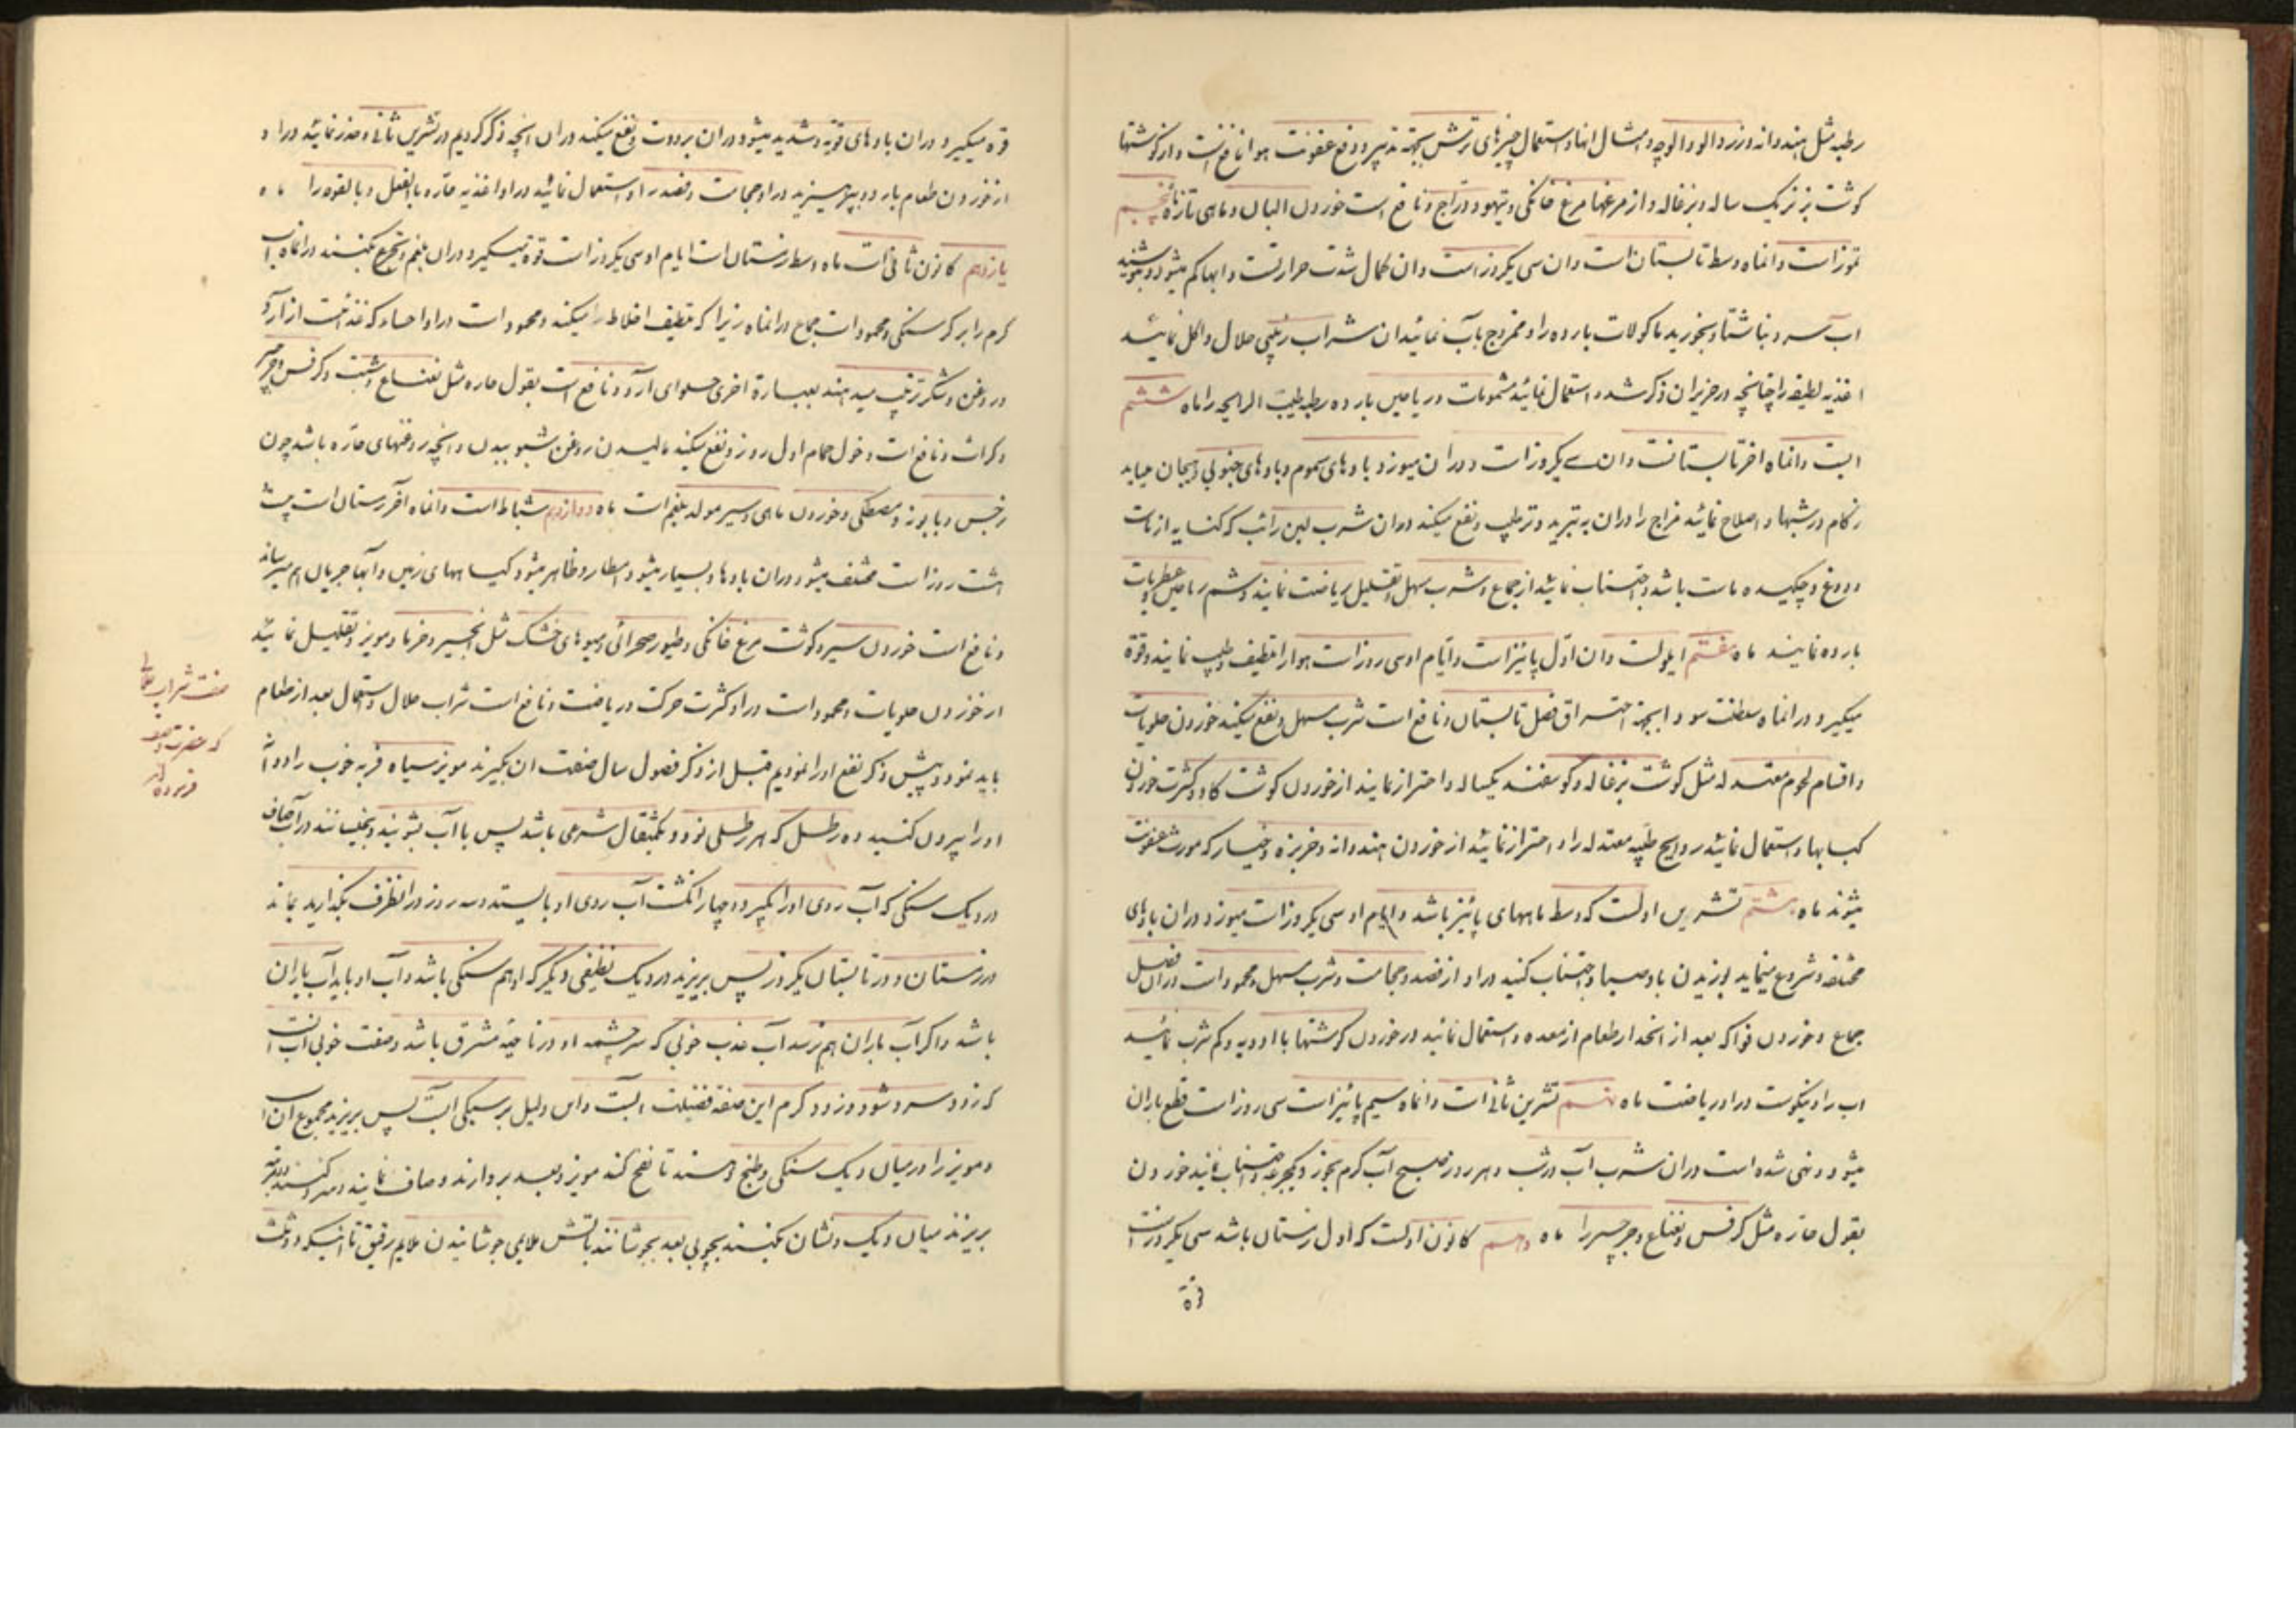 رطبه مثل هندوانه و زردالو و الوچه و امثال انها و استعمال چیزهای ترش بجهة تدبیر و دفع عفونت هوا نافع است و از گوشتها
گوشت بز نر یک ساله و بزغاله و از مرغها مرغ خانگی و تیهو و دراج و نافع است خوردن البان و ماهی تازه ماه پنجم
تموز است و انماه وسط تابستان است و ان سی یکروز است و ان کمال شدت حرارتست و ابها کم میشود و بنوشید
اب سرد ناشتا و بخورید ماکولات بارده را و ممزوج بآب نمائید ان شراب زبیبی حلال و اکل نمائید
اغذیه لطیفه را چنانچه در حزیران ذکر شد و استعمال نمائید مشمومات و ریاحین بارده رطبه طیب الرایحه را ماه ششم
ابست و انماه اخر تابستانست و ان سی یکروز است و در ان میوزد بادهای سموم و بادهای جنوبی و هیجان میابد
زکام در شبها و اصلاح نمائید مزاج را در ان به تبرید و ترطیب و نفع میکند در ان شرب لبن رائب که کنایه از ماست
و دوغ و چکیده ماست باشد و اجتناب نمائید از جماع و شرب مسهل و تقلیل ریاضت نمایند و شم ریاحین و عطریات
بارده نمایند ماه هفتم ایلولست و ان اول پائیز است و ایام او سی روز است هوا را لطیف و طیب نمایند و قوة
میگیرد در انماه سلطنت سودا بجهة احتراق فصل تابستان و نافع است شرب مسهل و نفع میکند خوردن حلویات
و اقسام لحوم معتدله مثل گوشت بزغاله و گوسفند یکساله و احتراز نمایند از خوردن گوشت گاو و کثرت خوردن
کبابها و استعمال نمائید روایح طیبه معتدله را و احتراز نمائید از خوردن هندوانه و خربزه و خیار که مورث عفونت
میشوند ماه هشتم تشرین اولست که وسط ماههای پائیز باشد و ایام او سی یکروز است میوزد در ان بادهای
مختلفه و شروع مینماید بوزیدن باد صبا و اجتناب کنید در او از فصد و حجامت و شرب مسهل و محمود است در ان فصل
جماع و خوردن فواکه بعد از انحدار طعام از معده و استعمال نمائید در خوردن گوشتها با ادویه و کم شرب نمائید
اب را و نیکوست در او ریاضت ماه نهم تشرین ثانی است و انماه سیم پائیز است سی روز است قطع باران
میشود و نهی شده است در ان شرب آب در شب و هر روز صبح آب گرم بخورند یکجرعه و اجتناب نمایند خوردن
بقول حاره مثل کرفس و نعناع و جرجیر را ماه دهم کانون اولست که اول زمستان باشد سی یکروز است
قوة
قوة میگیرد در ان بادهای قویه و شدید میشود در ان برودت و نفع میکند در ان انچه ذکر کردیم در تشرین ثانی و حذر نمائید در او
از خوردن طعام بارد و بپرهیزید در او حجامت و فصد را و استعمال نمائید در او اغذیه حاره بالفعل و بالقوه را ماه
یازدهم کانون ثانی است ماه وسط زمستان است ایام او سی یکروز است قوة میگیرد در ان بلغم و تجرع میکنند در انماه آب
گرم را بر گرسنگی و محمود است جماع در انماه زیرا که تلطیف اخلاط را میکند و محمود است در او احساء که غذائیست از آرد
و روغن و شکر ترتیب میدهند بعبارة اخری حلوای آرد و نافع است بقول حاره مثل نعناع و شبت و کرفس و جرجیر
و کراث و نافع است دخول حمام اول روز و نفع میکند مالیدن روغن شب بو ببدن و انچه روغنهای حاره باشد چون
نرجس و بابونه و مصطکی و خوردن ماهی و سیر مولد بلغم است ماه دوازدهم شباط است و انماه آخر زمستان است بیست
هشت روز است مختلف میشود در ان بادها و بسیار میشود امطار و ظاهر میشود گیاههای زمین و آبها جریان هم میرسانند
و نافع است خوردن سیر و گوشت مرغ خانگی و طیور صحرائی و میوهای خشک مثل انجیر و خرما و مویز و تقلیل نمائید
از خوردن حلویات و محمود است در او کثرت حرکت و ریاضت و نافع است شراب حلال و استعمال بعد از طعام
باید نمود و پیش ذکر نفع او را نمودیم قبل از ذکر فصول سال صفت ان بگیرند مویز سیاه فربه خوب را و دانه
او را بیرون کنید ده رطل که هر رطلی نود و یکمثقال شرعی باشد پس با آب بشویند و بخیسانند در آب صاف
در دیگ سنگی که آب روی او را بگیرد و چهار انگشت آب روی او بایستد و سه روز در انظرف بگذارید بماند
در زمستان و در تابستان یکروز پس بریزید در دیگ نظیفی دیگر که او هم سنگی باشد و آب او باید آب باران
باشد و اگر آب باران هم نرسد آب عذب خوبی که سرچشمه او در ناحیه مشرق باشد و صفت خوبی آب انست
که زود سرد شود و زود گرم این صفة فضیلت ابست و این دلیل بر سبکی ابست پس بریزید مجموع ان اب
و مویز را در میان دیگ سنگی و طبخ دهند تا نضج کند مویز و بعد بردارند و صاف نمایند و سرد کنند بعد مرتبه
بریزند میان دیگ و نشان بکنند بچوبی بعد بجوشانند بآتش ملایمی جوشانیدن ملایم رقیق تا انکه دو ثلث
صفت شراب حلالی
که حضرت وصف
فرموده‌اند